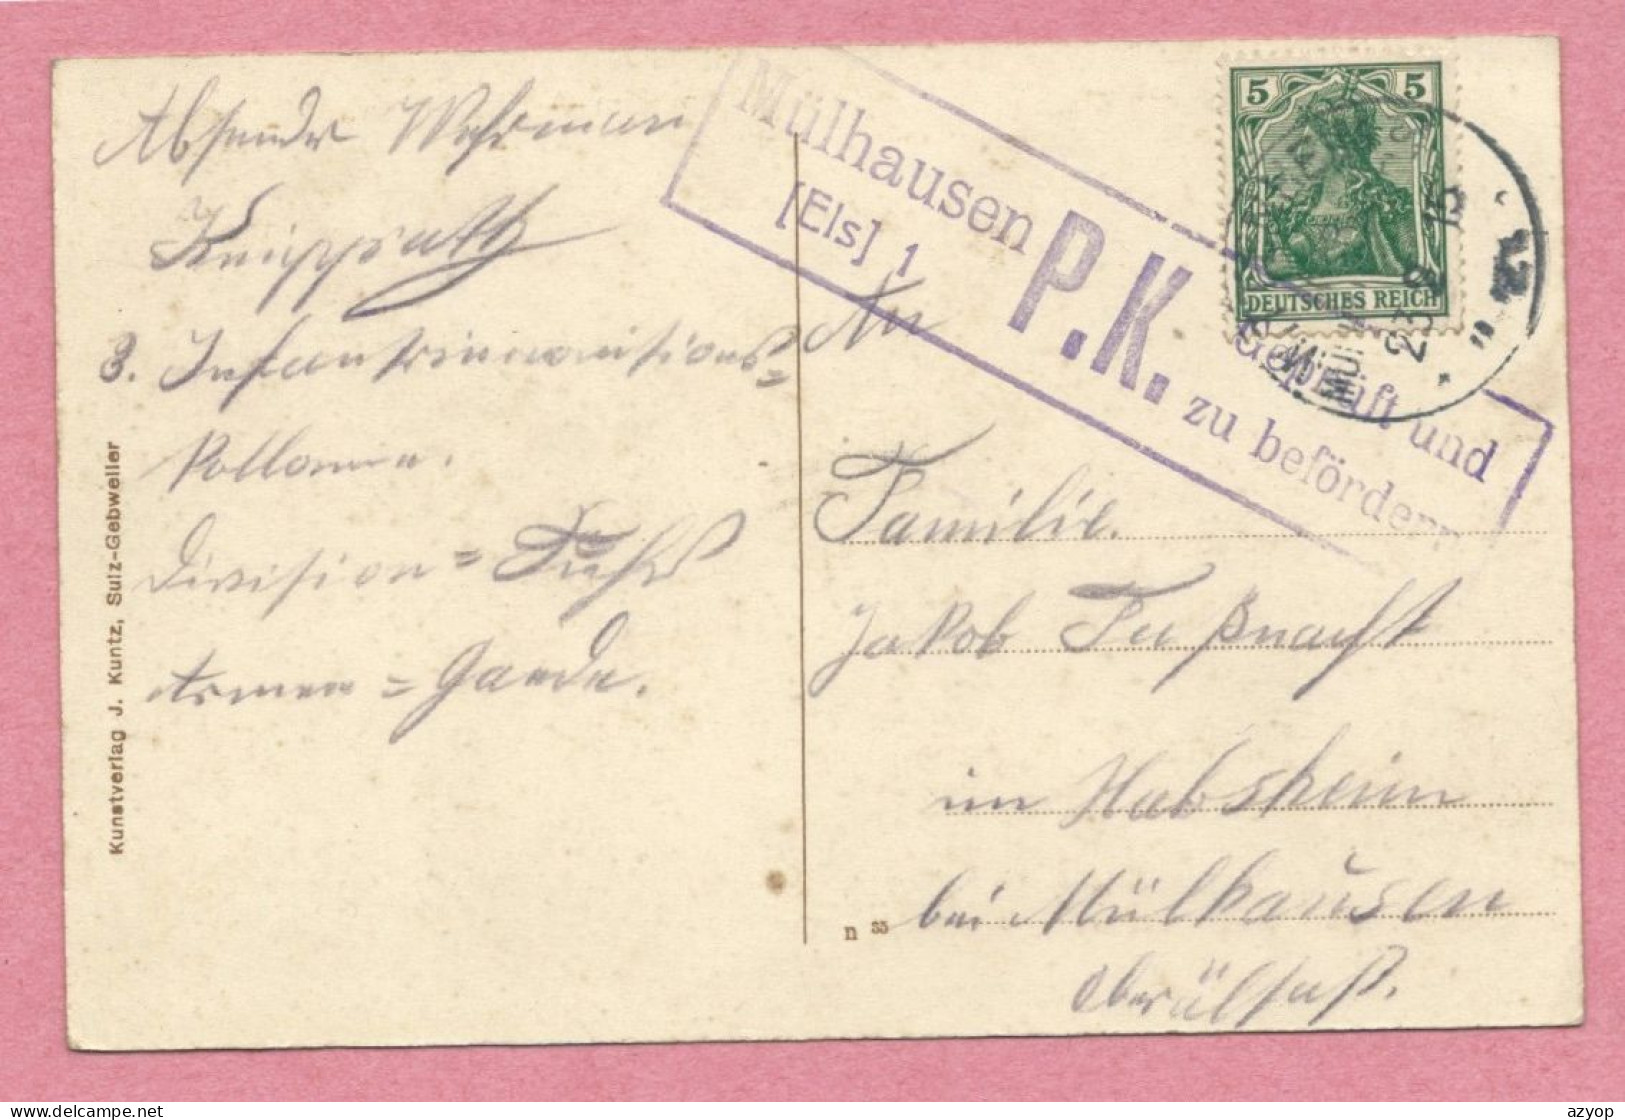 Absender Wehrman
Knipprath
3. Infantriemonitions=
kollonne.
Division = Fuchs
Armee = Gaede.
Kunstverlag J. Kuntz, Sulz-Gebweiler
Mülhausen
[Els] 1
P.K.
Geprüft und
zu befördern
5 5
DEUTSCHES REICH
An
Familie.
Jakob Fußnacht
in Habsheim
bei Mülhausen
Oberälsaß.
n 35
azyop
delcampe.net